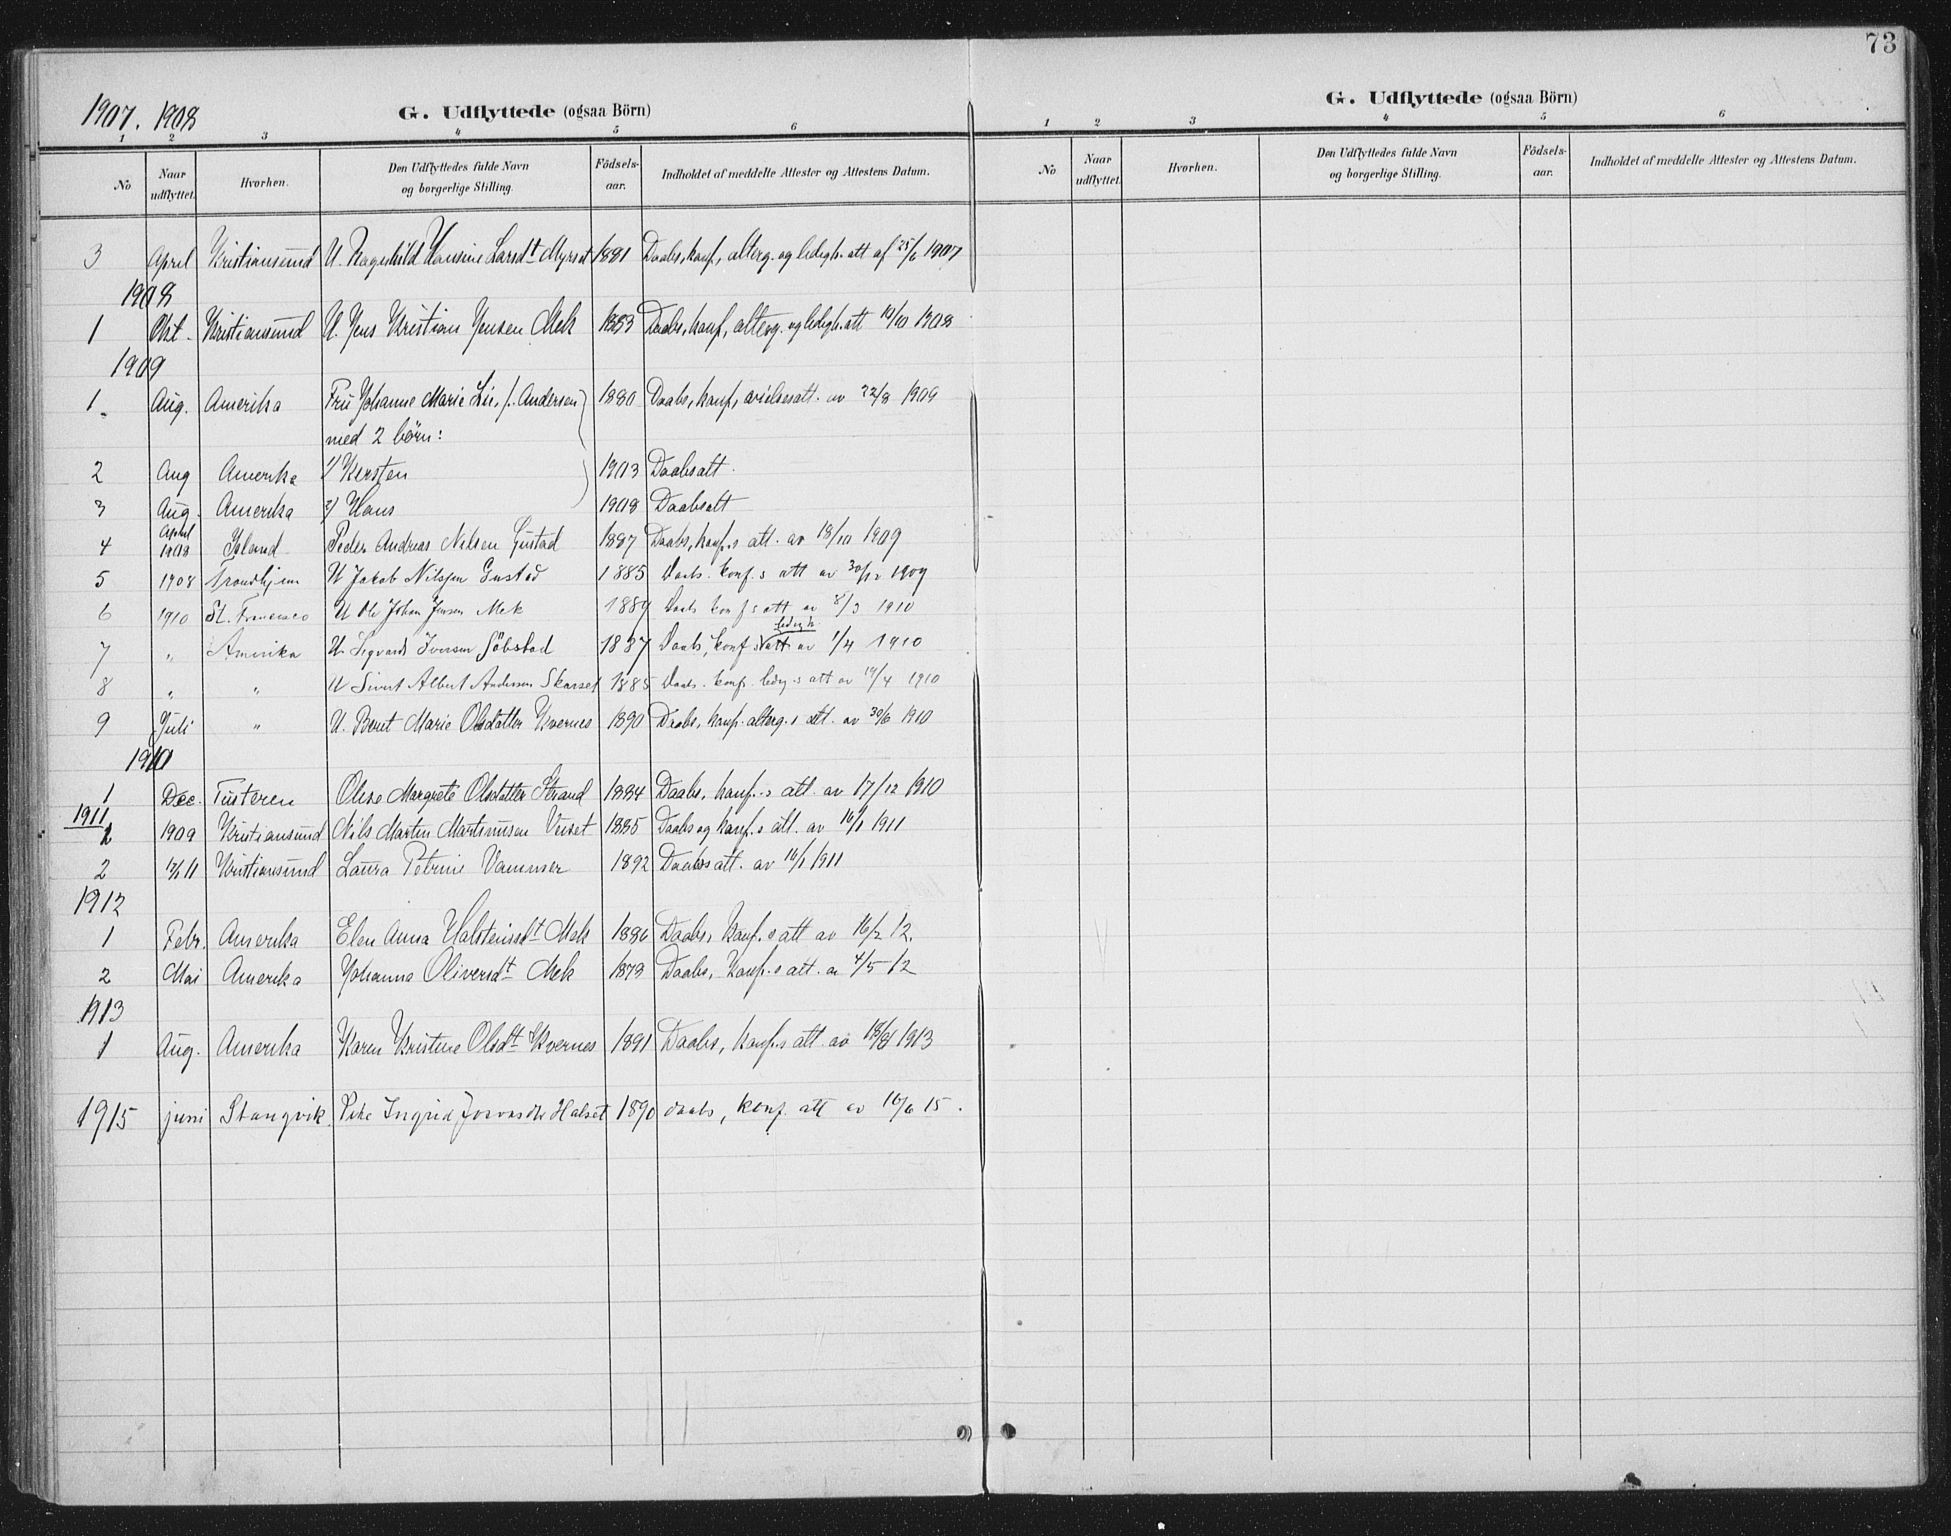 1907. 1908
G. Udflyttede (ogsaa Börn)
1 2 3 4 5 6
No Naar udflyttet. Hvorhen. Den Udflyttedes fulde Navn og borgerlige Stilling. Födsels-aar. Indholdet af meddelte Attester og Attestens Datum.
3 April Kristiansund U. Ragnhild Hansine Larsdt Myrset 1881 Daabs, konf, alterg. og ledigh. att af 25/6 1907
1908
1 Okt. Kristiansund U. Jens Kristian Jensen Mek 1883 Daabs, konf, alterg. og ledigh. att 10/10 1908
1909
1. Aug. Amerika Fru Johanne Marie Lie, f. Andersen 1880 Daabs, konf, vielsesatt. av 22/8 1909
med 2 börn:
2 Aug Amerika 1/ Kersten 1903 Daabsatt.
3 Aug. Amerika 2/ Hans 1908 Daabsatt
4 April 1908 Island Peder Andreas Nilsen Gustad 1887 Daabs, konf.s att. av 18/10 1909
5 1908 Trondhjem U Jakob Nilssen Gustad 1885 Daabs. konf.s att av 30/12 1909
6 1910 St. Francisco U Ole Johan Jensen Mek 1889 Daabs konf s att av 8/3 1910
7 " Amerika U Sigvard Iversen Söbstad 1887 Daabs, konf s ledigh. att av 1/4 1910
8 " " U Sivert Albert Andersen Skarset 1885 Daabs. konf. ledig-s att av 19/4 1910
9 Juli " U. Beret Marie Olsdatter Kvernes 1890 Daabs, konf. alterg.s att. av 30/6 1910
1910
1 Dec. Tusteren Oline Margrete Olsdatter Strand 1884 Daabs, konf.s att. av 17/12 1910
1911
1 1909 Kristiansund Nils Martin Martinusen 1885 Daabs og konf.s att. av 16/1 1911
2 Kristiansund Laura Petrine 1892 Daabsatt. av 16/1 1911
1912
1 Febr. Amerika Elen Anna Halstensdt Mek 1886 Daabs, konf.s att av 16/2 12.
2 Mai Amerika Johanna Oliversdt Mek 1873 Daabs, konf.s att. av 4/5 12
1913
1 Aug. Amerika Karen Kristine Olsdt Kvernes 1891 Daabs, konf.s att av 18/8 1913
1915 juni Stangvik. Pike Ingrid Halset 1890 daabs, konf. att av 16/6 15.
73
G. Udflyttede (ogsaa Börn)
1 2 3 4 5 6
No Naar udflyttet. Hvorhen. Den Udflyttedes fulde Navn og borgerlige Stilling. Födsels-aar. Indholdet af meddelte Attester og Attestens Datum.